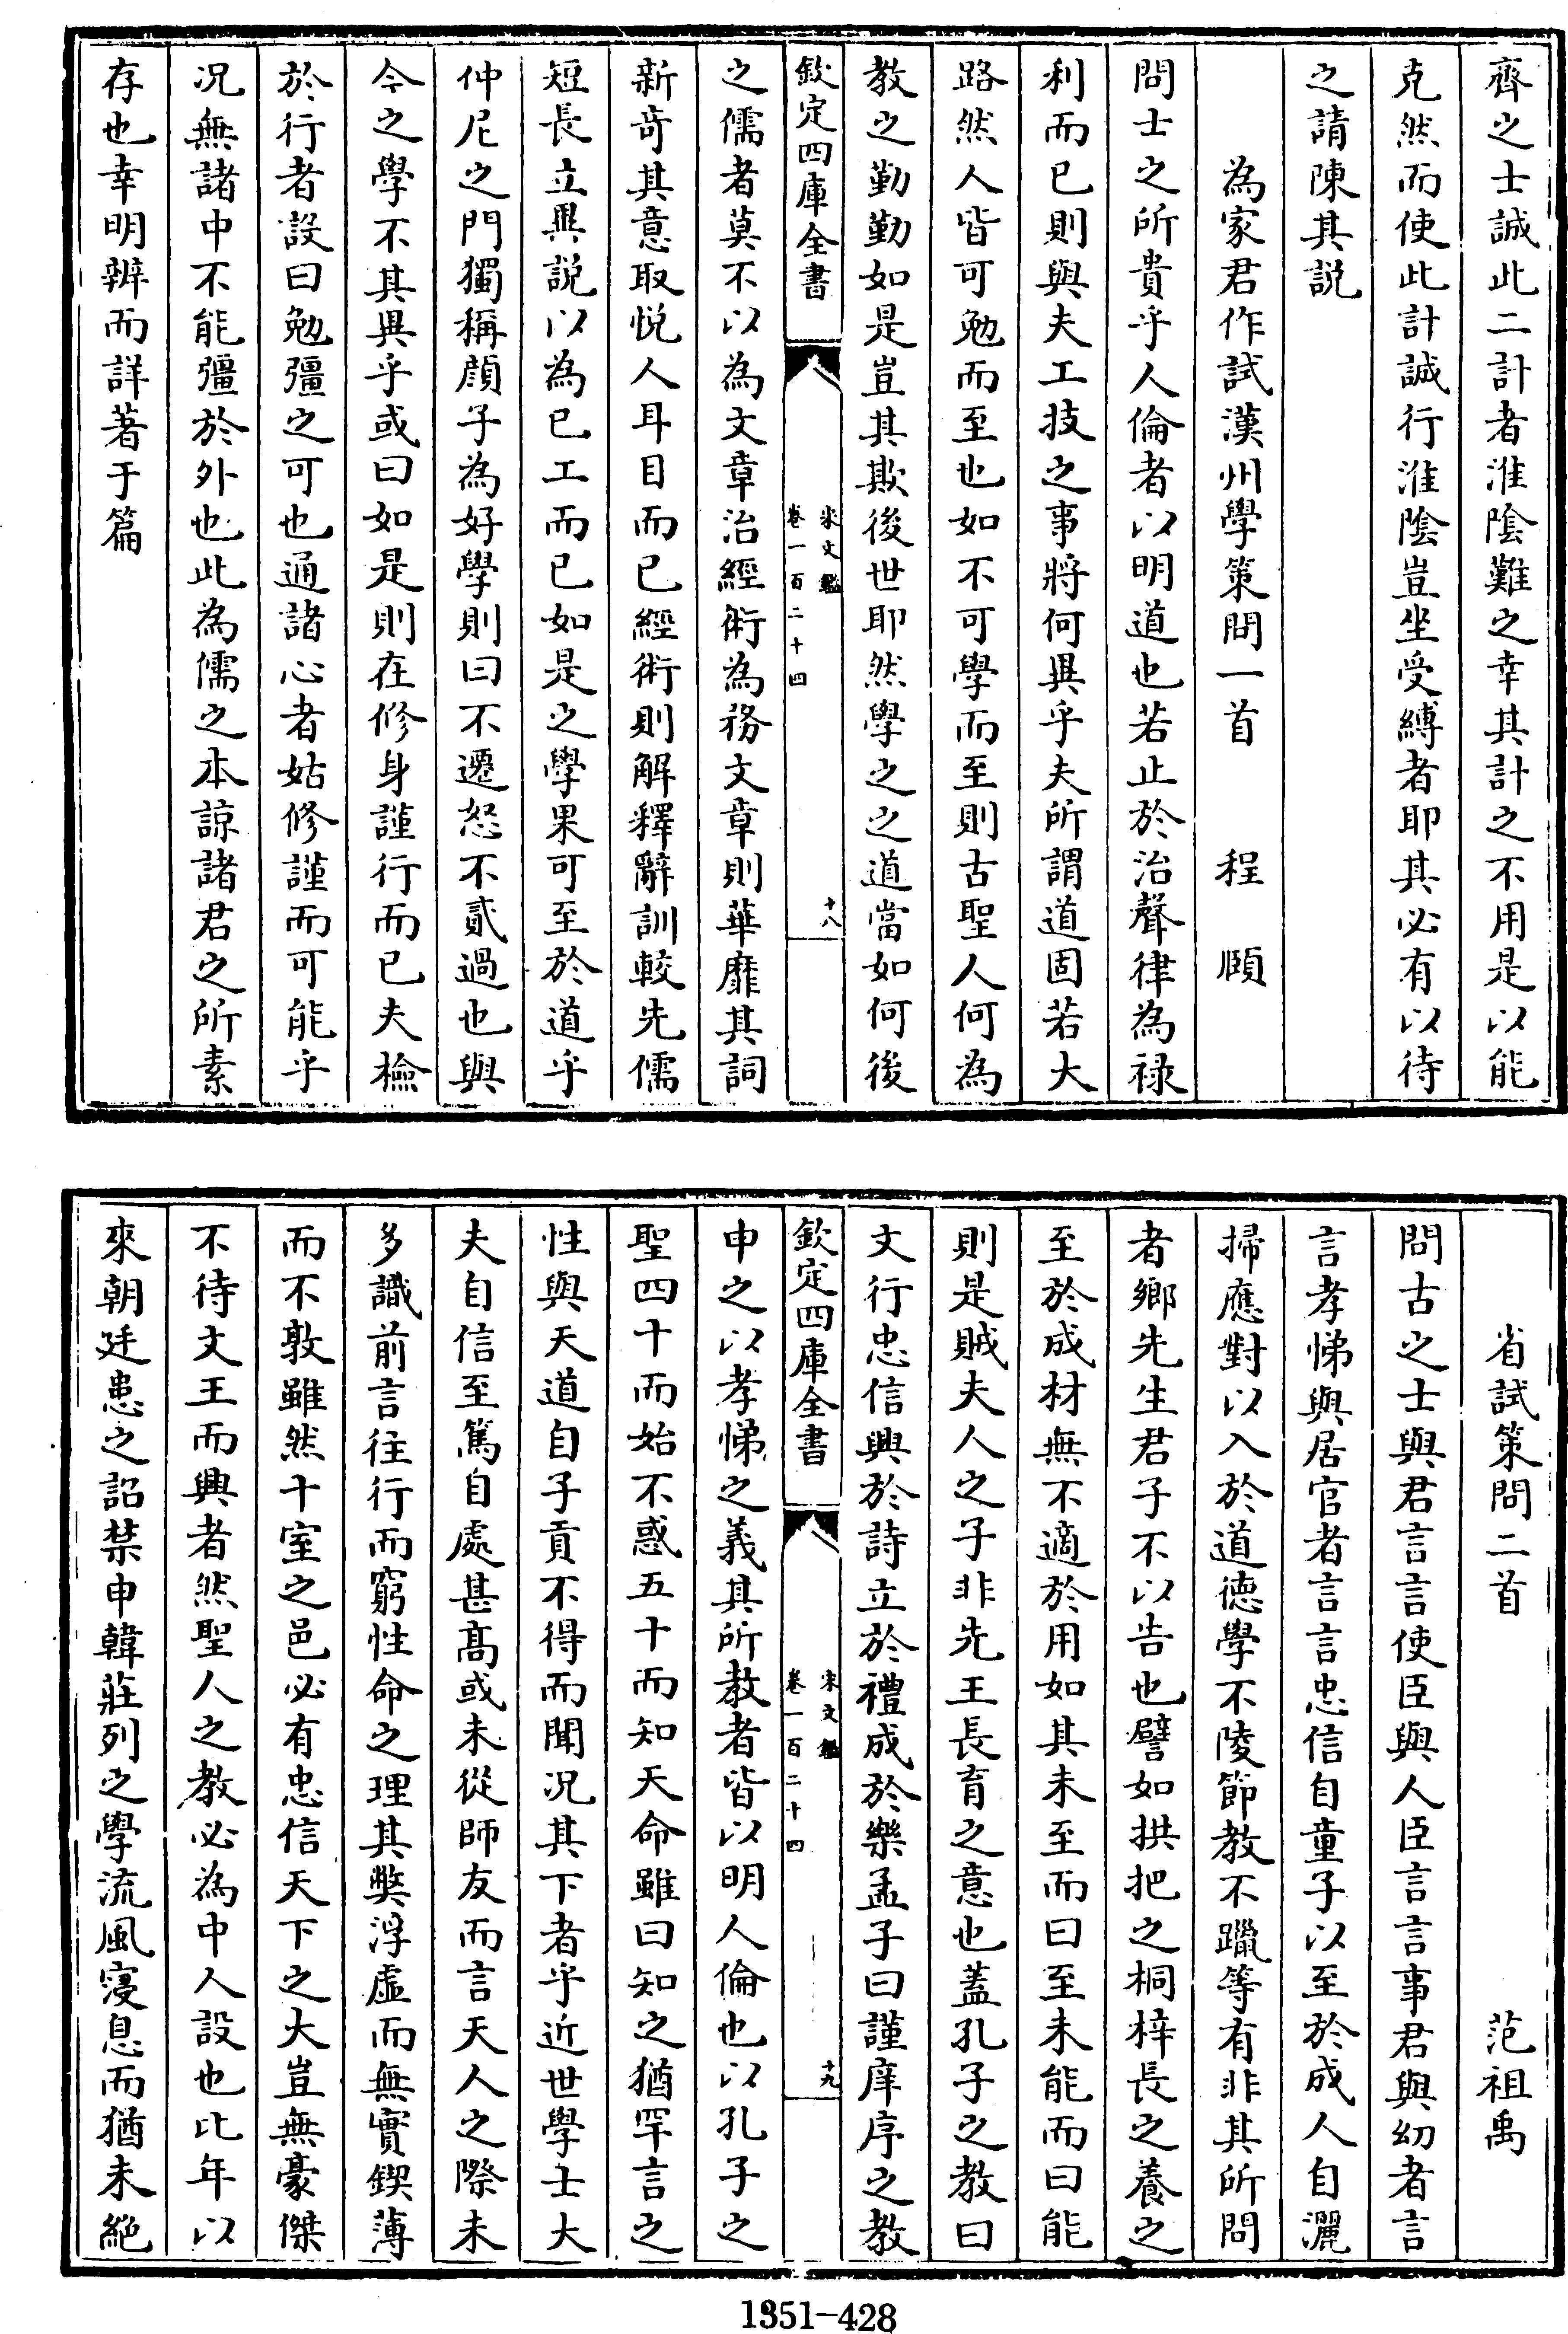 齊之士誠此二計者淮陰難之幸其計之不用是以能
克然而使此計誠行淮陰豈坐受縛者耶其必有以待
之請陳其説
為家君作試漢州學策問一首　程頤
問士之所貴乎人倫者以明道也若止於治聲律為禄
利而已則與夫工技之事將何異乎夫所謂道固若大
路然人皆可勉而至也如不可學而至則古聖人何為
教之勤勤如是豈其欺後世耶然學之之道當如何後
欽定四庫全書
宋文鑑
卷一百二十四
十八
之儒者莫不以為文章治經術為務文章則華靡其詞
新竒其意取悦人耳目而已經術則解釋辭訓較先儒
短長立異説以為已工而已如是之學果可至於道乎
仲尼之門獨稱顔子為好學則曰不遷怒不貳過也與
今之學不其異乎或曰如是則在修身謹行而已夫檢
於行者設曰勉彊之可也通諸心者姑修謹而可能乎
况無諸中不能彊於外也此為儒之本諒諸君之所素
存也幸明辨而詳著于篇
省試策問二首　范祖禹
問古之士與君言言使臣與人臣言言事君與幼者言
言孝悌與居官者言言忠信自童子以至於成人自灑
掃應對以入於道徳學不陵節教不躐等有非其所問
者鄉先生君子不以告也譬如拱把之桐梓長之養之
至於成材無不適於用如其未至而曰至未能而曰能
則是賊夫人之子非先王長育之意也蓋孔子之教曰
文行忠信興於詩立於禮成於樂孟子曰謹庠序之教
欽定四庫全書
宋文鑑
卷一百二十四
十九
申之以孝悌之義其所教者皆以明人倫也以孔子之
聖四十而始不惑五十而知天命雖曰知之猶罕言之
性與天道自子貢不得而聞况其下者乎近世學士大
夫自信至篤自處甚髙或未從師友而言天人之際未
多識前言往行而窮性命之理其獘浮虛而無實鍥薄
而不敦雖然十室之邑必有忠信天下之大豈無豪傑
不待文王而興者然聖人之教必為中人設也比年以
來朝廷患之詔禁申韓莊列之學流風寖息而猶未絶
1351-428